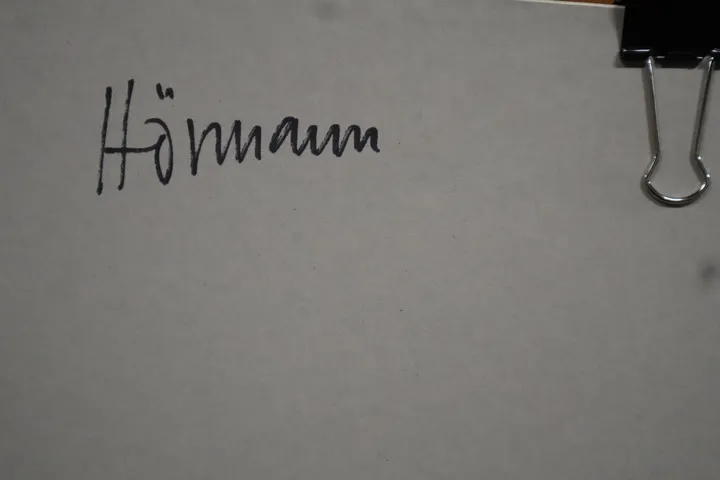 Hörmann